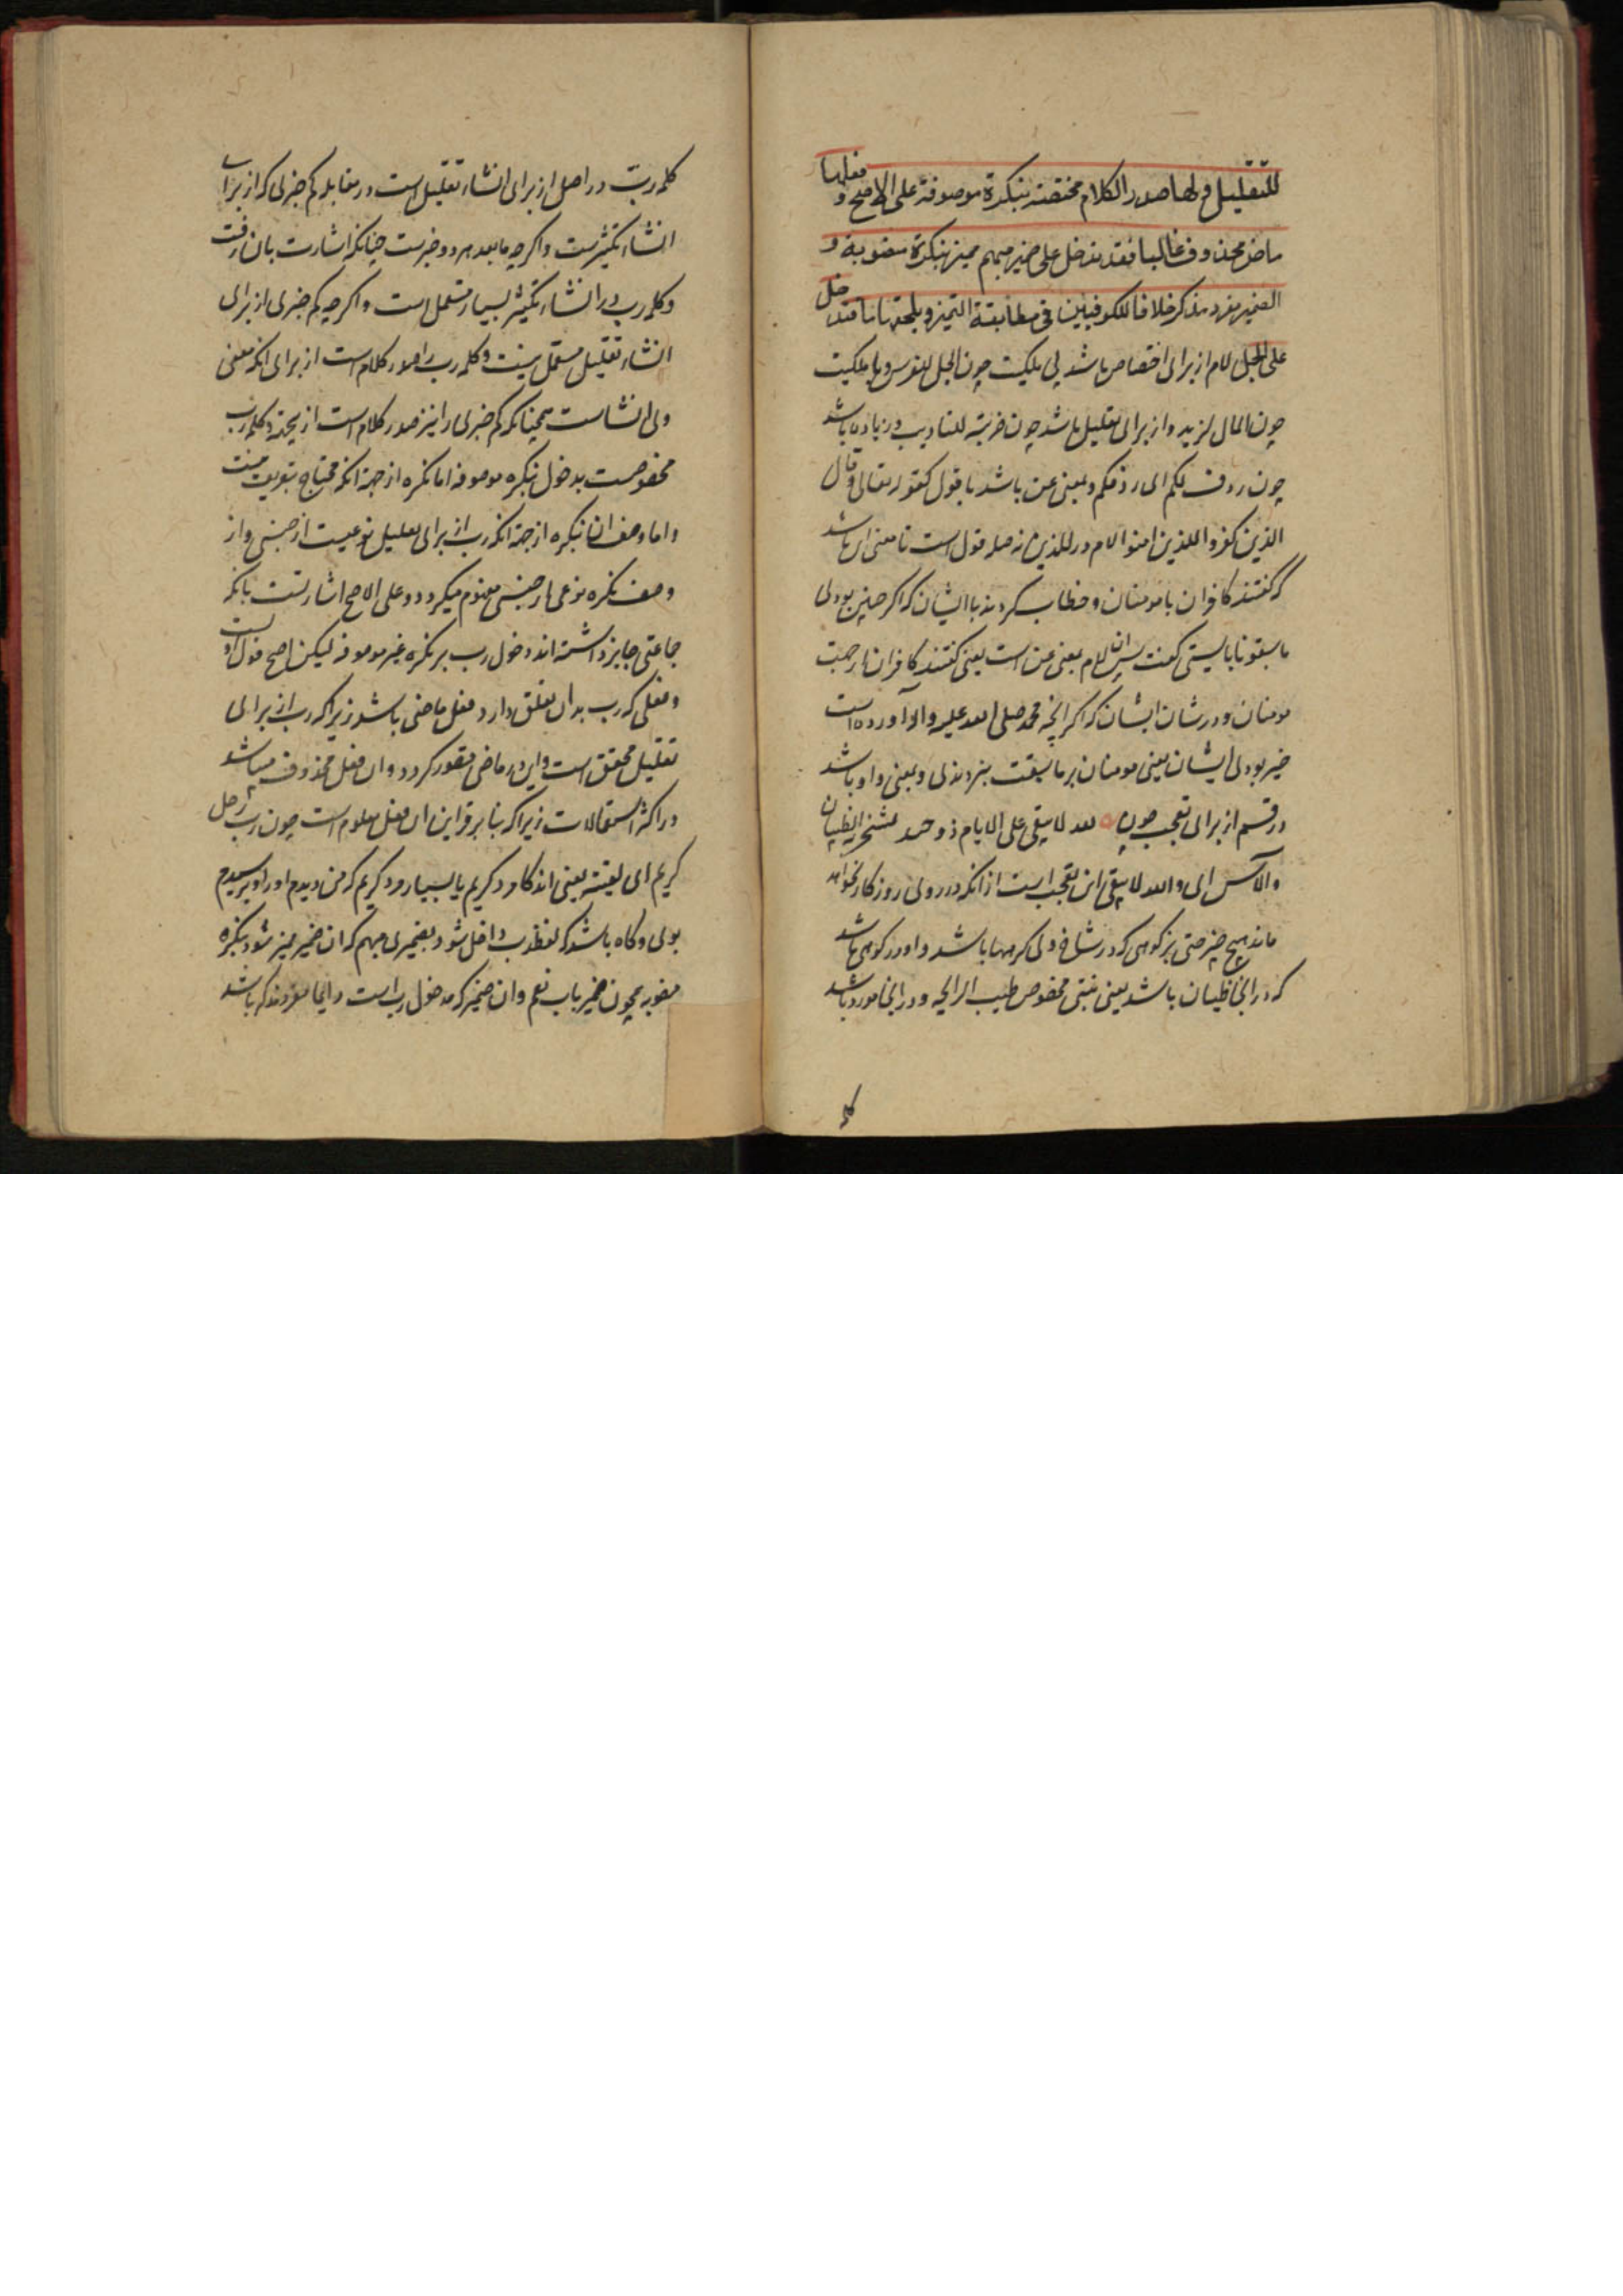 للتقلیل ولها صدر الکلام مختصة بنکرة موصوفة علی الاصح و فعلها
ماض محذوف غالبا فقد تدخل علی ضمیر مبهم ممیز بنکرة منصوبة و
الضمیر مفرد مذکر خلافا للکوفیین فی مطابقة التمیز و یلحقها ما فتدخل
علی الجمل لام از برای اختصاص باشد بی ملکیت چون الجل للفرس و با ملکیت
چون المال لزید و از برای تعلیل باشد چون ضربته للتادیب و زیاده باشد
چون ردف لکم ای ردفکم و بمعنی عن باشد با قول کقوله تعالی و قال
الذین کفروا للذین امنوا لام در للذین نه صله قول است تا معنی این باشد
که گفتند کافران با مومنان و خطاب کردند با ایشان که اگر خیر بودی
ما سبقونا بایستی گفت پس این لام بمعنی عن است یعنی گفتند کافران از جهت
مومنان و در شان ایشان که اگر انچه محمد صلی الله علیه و اله آورده است
خیر بودی ایشان یعنی مومنان بر ما سبقت نبردندی و بمعنی واو باشد
در قسم از برای تعجب چون لله لا یبقی علی الایام ذو حید بمشخر به الظیان
والآس ای والله لا یبقی این تعجب است از انکه در روی روزکار نخواهد
ماند هیچ چیز حتی بز کوهی که در شاخ وی کرهها باشد و او در کوهی باشد
که در انجا ظیان باشد یعنی نبتی مخصوص طیب الرایحه و در انجا مورد باشد
کلمه
کلمه ربّ در اصل از برای انشاء تقلیل است در مقابله کم خبری که از برای
انشاء تکثیرست و اکرچه ما بعد هر دو خبرست چنانکه اشارت بان رفت
و کلمه رب در انشاء تکثیر بسیار مستعمل است و اکرچه کم خبری از برای
انشاء تقلیل مستعمل نیست و کلمه رب را صدر کلام است از برای انکه معنی
وی انشاست همچنانکه کم خبری را نیز صدر کلام است ازینجهة و کلمه رب
مخصوصست بدخول نکره موصوفه اما نکره از جهة انکه محتاج بتعریف نیست
و اما وصف ان نکره از جهة انکه رب از برای تقلیل نوعیست از جنسی و از
وصف نکره نوعی از جنسی مفهوم میکردد و علی الاصح اشارتست بانکه
جماعتی جایز داشته اند دخول رب بر نکره غیر موصوفه لیکن اصح قول اولست
و فعلی که رب بدان تعلق دارد فعل ماضی باشد زیرا که رب از برای
تقلیل محقق است و این در ماضی متصور کردد و ان فعل محذوف میباشد
در اکثر استعمالات زیرا که بنا بر قراین ان فعل معلوم است چون رب رجل
کریم ای لقیته یعنی اندکا مرد کریم یا بسیار مرد کریم که من دیدم او را و برسیدم
بوی و کاه باشد که لفظ رب داخل شود بضمیری مبهم که ان ضمیر ممیز شود بنکره
منصوبه همچون ضمیر باب نعم و ان ضمیر که مدخول رب است دایما مفرد مذکر باشد